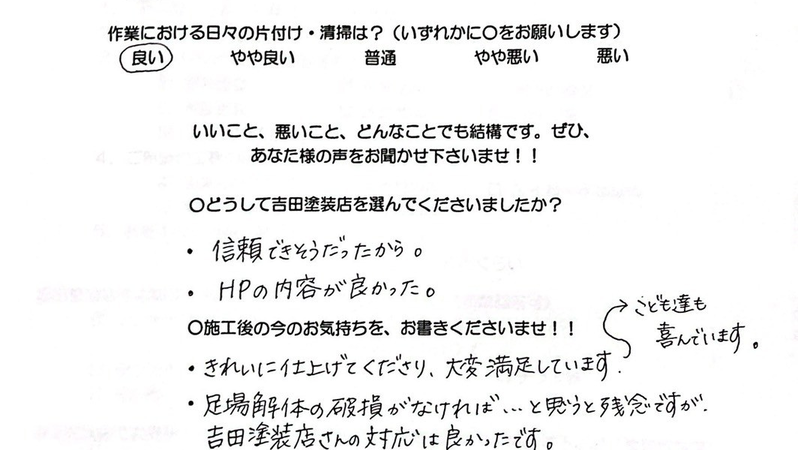 作業における日々の片付け・清掃は？（いずれかに〇をお願いします）
良い やや良い 普通 やや悪い 悪い
いいこと、悪いこと、どんなことでも結構です。ぜひ、
あなた様の声をお聞かせ下さいませ！！
〇どうして吉田塗装店を選んでくださいましたか？
・信頼できそうだったから。
・HPの内容が良かった。
〇施工後の今のお気持ちを、お書きくださいませ！！
・きれいに仕上げてくださり、大変満足しています。
→こども達も
喜んでいます。
・足場解体の破損がなければ…と思うと残念ですが、
吉田塗装店さんの対応は良かったです。